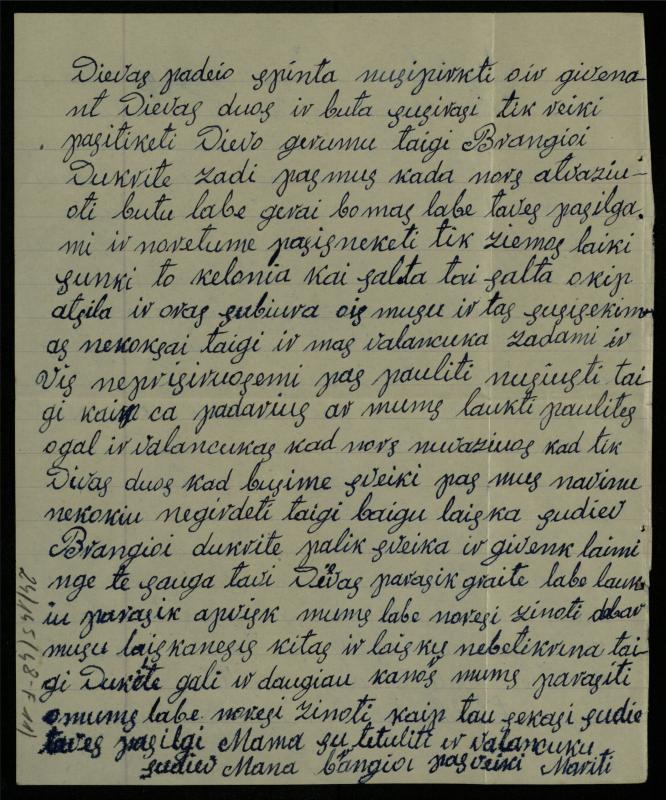 Dievas padeio spinta nusipirkti oir givena
nt Dievas duos ir buta susirasi tik reiki
pasitiketi Dievo gerumu taigi Brangioi
Dukrite zadi pas mus kada nors atvaziu-
oti butu labe gerai bo mas labe taves pasilga.
mi ir noretume pasisneketi tik ziemos laiki
sunki to kelonia kai salta tai salta okip
atsila ir oras subiura ois musu ir tas susisekim
as nekoksai taigi ir mas valancuka zadami ir
Vis neprisiruosemi pas pauliti nusiusti tai
gi kaip ca padarius ar mums laukti paulites
ogal ir valancukas kad nors nuvaziuos kad tik
Divas duos kad busime sveiki pas mus navinu
nekokiu negirdeti taigi baigu laiska sudiev
Brangioi dukrite palik sveika ir givenk laimi
nge te sauga tavi Dievas parasik graite labe lauk
iu parasik apvisk mums labe noresi zinoti dabar
musu laiskanesis kitas ir laisku nebetikrina tai
gi Dukrite gali ir daugiau kanors mums parasiti
omums labe noresi zinoti kaip tau sekasi sudie
taves pasilgi Mama su tetuliti ir valancuku
sudiev Mana brangioi pasveiki Mariti
24145(48-F-11)